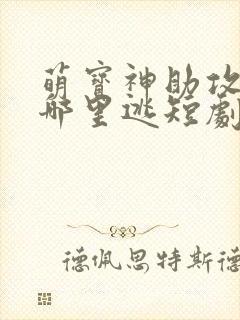 萌寳神助攻
哪里逃短劇
德佩思特斯德